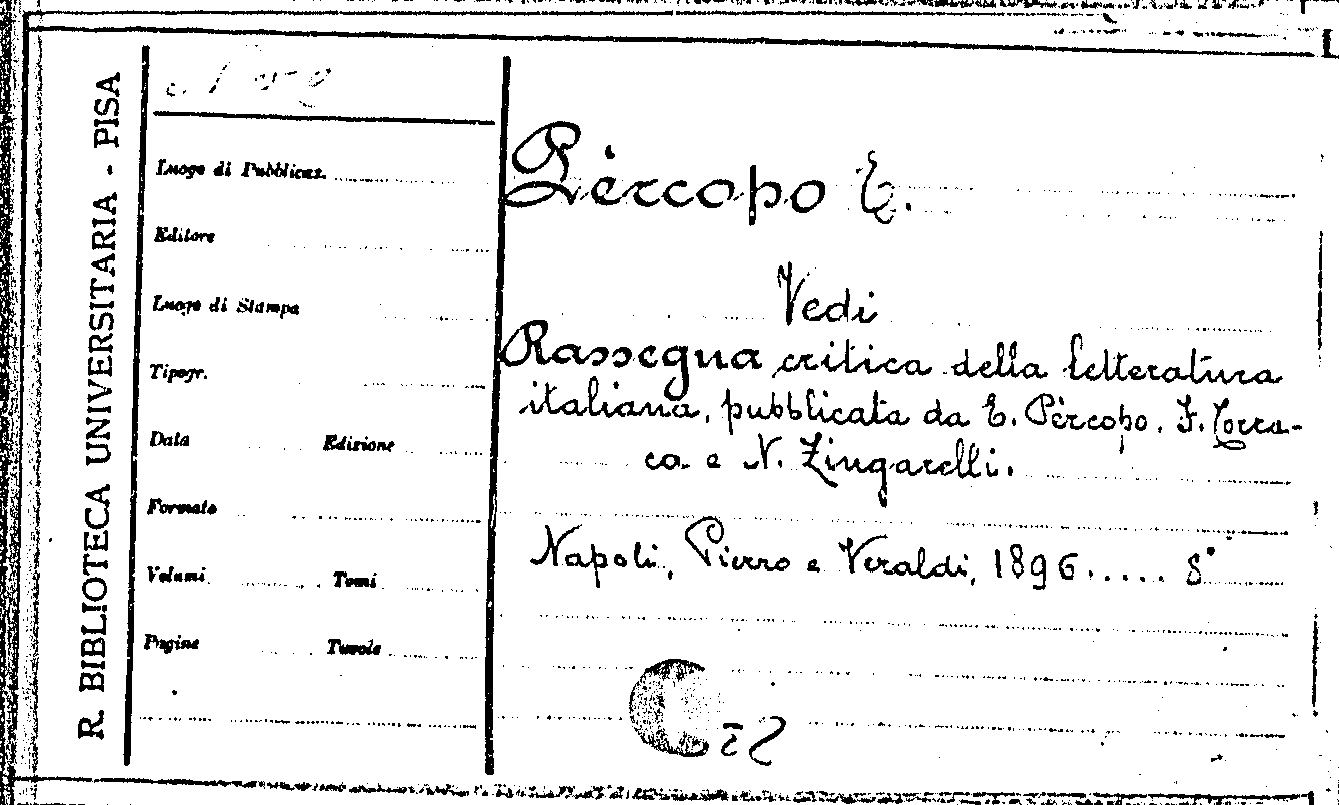 R. BIBLIOTECA UNIVERSITARIA - PISA
Luogo di Pubblicaz.
Editore
Luogo di Stampa
Tipogr.
Data Edizione
Formato
Volumi Tomi
Pagine Tavole
Pèrcopo E.
Vedi
Rassegna critica della letteratura
italiana, pubblicata da E. Pèrcopo, F. Torra-
ca e N. Zingarelli.
Napoli, Pierro e Veraldi, 1896..... 8°